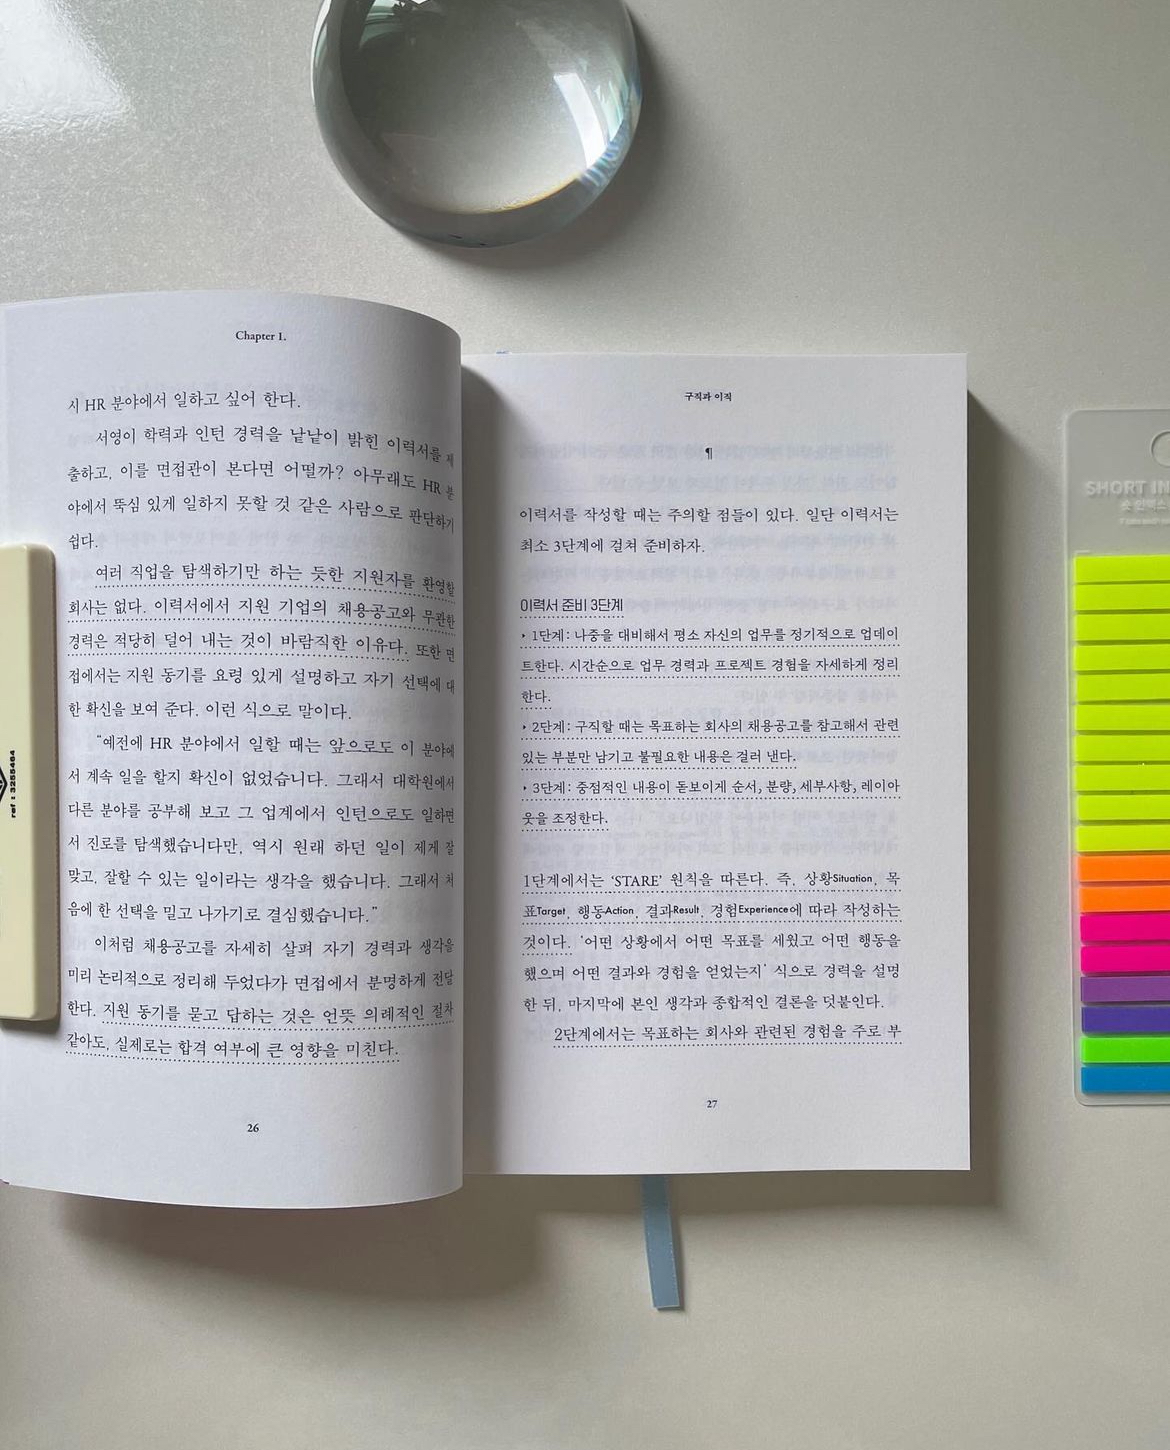 Chapter 1.
시 HR 분야에서 일하고 싶어 한다.
서영이 학력과 인턴 경력을 낱낱이 밝힌 이력서를 제
출하고, 이를 면접관이 본다면 어떨까? 아무래도 HR 분
야에서 뚝심 있게 일하지 못할 것 같은 사람으로 판단하기
쉽다.
여러 직업을 탐색하기만 하는 듯한 지원자를 환영할
회사는 없다. 이력서에서 지원 기업의 채용공고와 무관한
경력은 적당히 덜어 내는 것이 바람직한 이유다. 또한 면
접에서는 지원 동기를 요령 있게 설명하고 자기 선택에 대
한 확신을 보여 준다. 이런 식으로 말이다.
“예전에 HR 분야에서 일할 때는 앞으로도 이 분야에
서 계속 일을 할지 확신이 없었습니다. 그래서 대학원에서
다른 분야를 공부해 보고 그 업계에서 인턴으로도 일하면
서 진로를 탐색했습니다만, 역시 원래 하던 일이 제게 잘
맞고, 잘할 수 있는 일이라는 생각을 했습니다. 그래서 처
음에 한 선택을 밀고 나가기로 결심했습니다.”
이처럼 채용공고를 자세히 살펴 자기 경력과 생각을
미리 논리적으로 정리해 두었다가 면접에서 분명하게 전달
한다. 지원 동기를 묻고 답하는 것은 언뜻 의례적인 절차
같아도, 실제로는 합격 여부에 큰 영향을 미친다.
26
구직과 이직
¶
이력서를 작성할 때는 주의할 점들이 있다. 일단 이력서는
최소 3단계에 걸쳐 준비하자.
이력서 준비 3단계
‣ 1단계: 나중을 대비해서 평소 자신의 업무를 정기적으로 업데이
트한다. 시간순으로 업무 경력과 프로젝트 경험을 자세하게 정리
한다.
‣ 2단계: 구직할 때는 목표하는 회사의 채용공고를 참고해서 관련
있는 부분만 남기고 불필요한 내용은 걸러 낸다.
‣ 3단계: 중점적인 내용이 돋보이게 순서, 분량, 세부사항, 레이아
웃을 조정한다.
1단계에서는 ‘STARE’ 원칙을 따른다. 즉, 상황Situation, 목
표Target, 행동Action, 결과Result, 경험Experience에 따라 작성하는
것이다. ‘어떤 상황에서 어떤 목표를 세웠고 어떤 행동을
했으며 어떤 결과와 경험을 얻었는지’ 식으로 경력을 설명
한 뒤, 마지막에 본인 생각과 종합적인 결론을 덧붙인다.
2단계에서는 목표하는 회사와 관련된 경험을 주로 부
27
ref : 3255464
SHORT IN
숏 인덱스